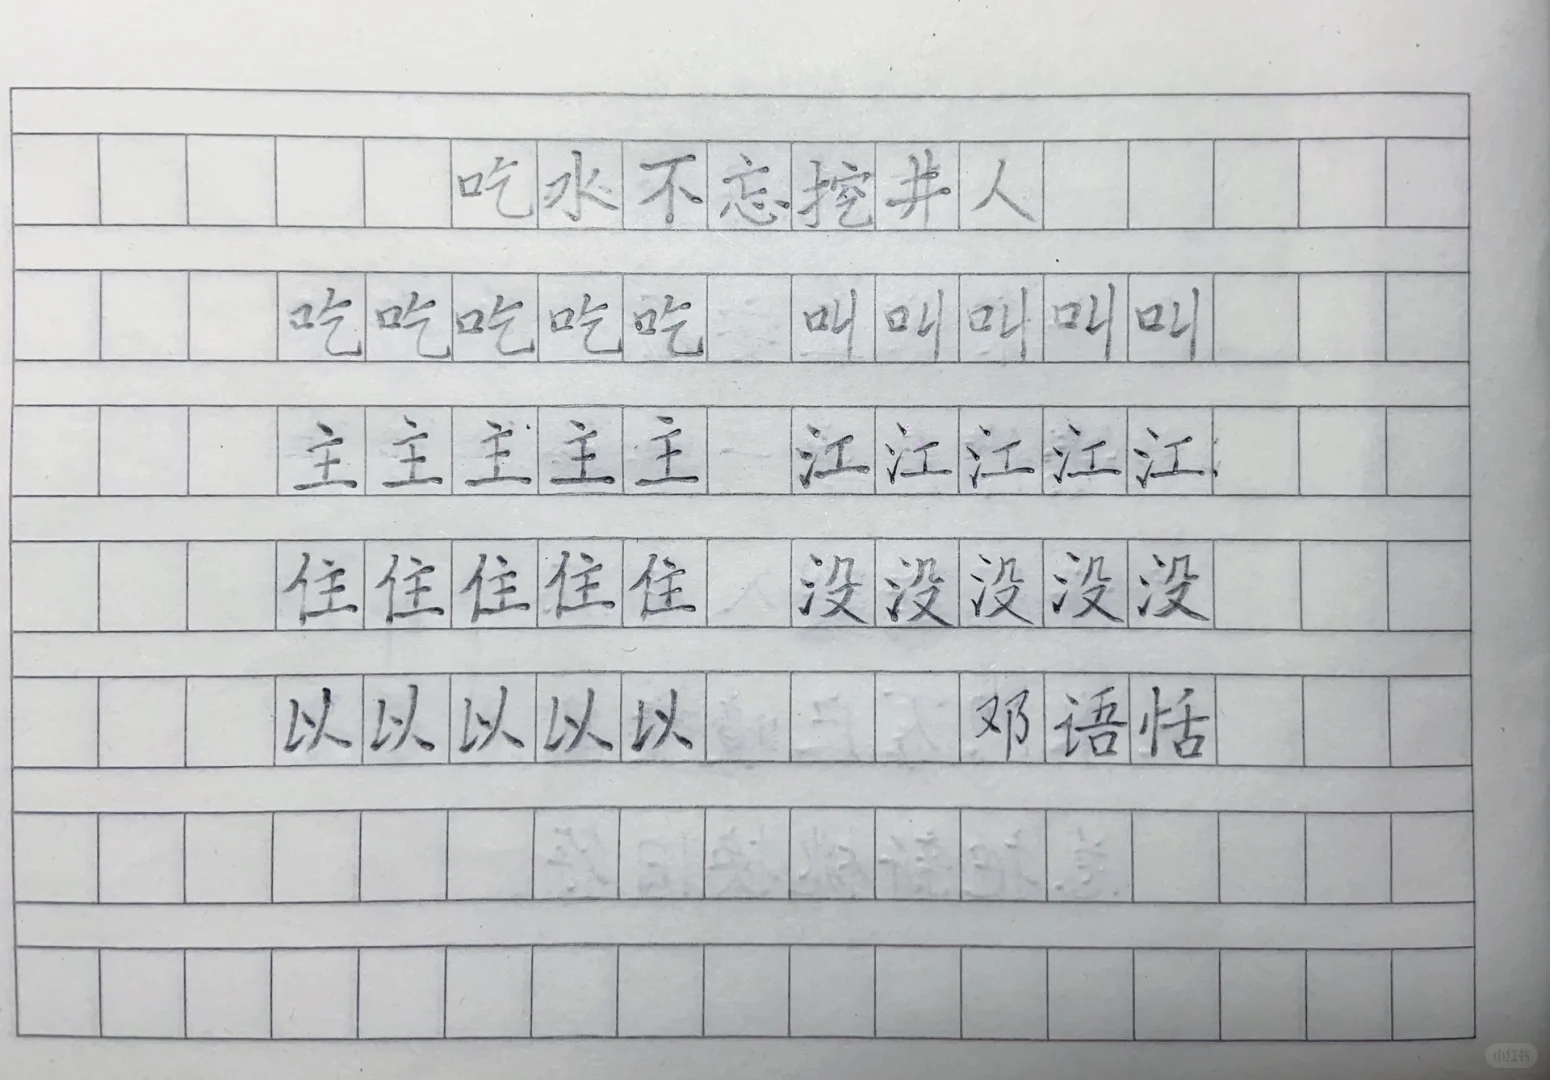 吃水不忘挖井人
吃吃吃吃吃 叫叫叫叫叫
主主主主主 江江江江江
住住住住住 没没没没没
以以以以以 邓语恬
小红书